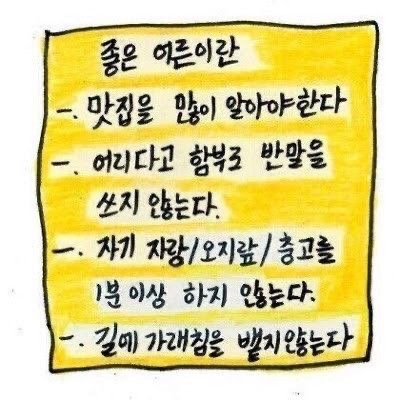 좋은 어른이란
一. 맛집을 많이 알아야한다
一. 어리다고 함부로 반말을
쓰지 않는다.
一. 자기 자랑/오지랖/충고를
1분이상 하지 않는다.
一. 길에 가래침을 뱉지않는다